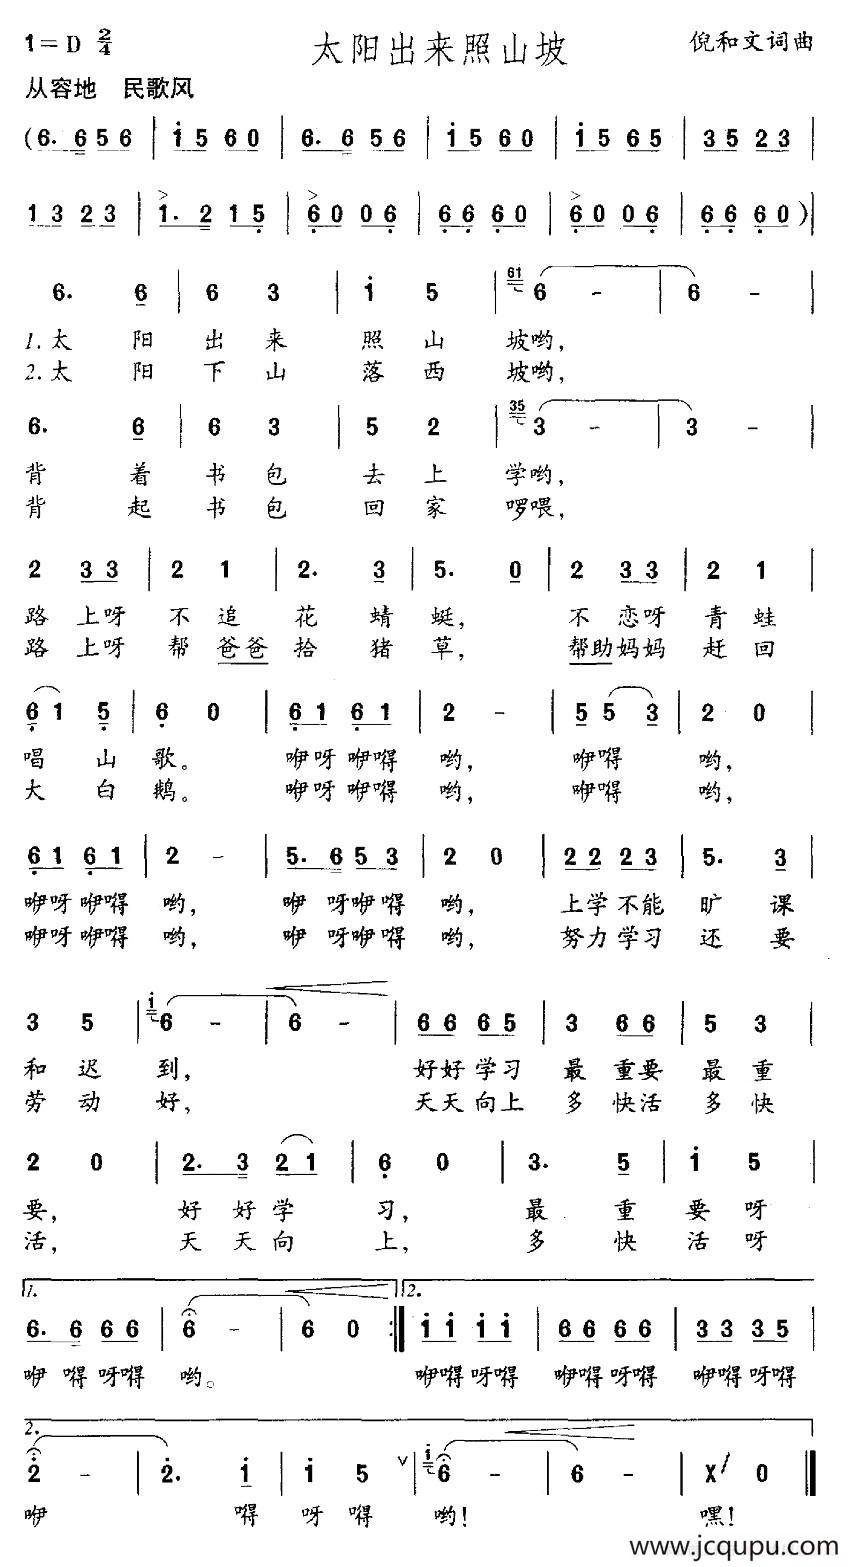 1=D 2/4 太阳出来照山坡 倪和文词曲
从容地 民歌风
(6. 6 5 6 | i 5 6 0 | 6. 6 5 6 | i 5 6 0 | i 5 6 5 | 3 5 2 3 |
1 3 2 3 | 1. 2 1 5 | 6 0 0 6 | 6 6 6 0 | 6 0 0 6 | 6 6 6 0 )|
6. 6 | 6 3 | i 5 | 61 6 - | 6 - |
1.太 阳 出 来 照 山 坡哟,
2.太 阳 下 山 落 西 坡哟,
6. 6 | 6 3 | 5 2 | 35 3 - | 3 - |
背 着 书 包 去 上 学哟,
背 起 书 包 回 家 啰喂,
2 3 3 | 2 1 | 2. 3 | 5. 0 | 2 3 3 | 2 1 |
路 上呀 不 追 花 蜻 蜓, 不 恋呀 青 蛙
路 上呀 帮 爸爸 拾 猪 草, 帮助妈妈 赶 回
6 1 5 | 6 0 | 6 1 6 1 | 2 - | 5 5 3 | 2 0 |
唱 山 歌。 咿呀 咿嘚 哟, 咿嘚 哟,
大 白 鹅。 咿呀 咿嘚 哟, 咿嘚 哟,
6 1 6 1 | 2 - | 5. 6 5 3 | 2 0 | 2 2 2 3 | 5. 3 |
咿呀 咿嘚 哟, 咿 呀咿嘚 哟, 上学 不能 旷 课
咿呀 咿嘚 哟, 咿 呀咿嘚 哟, 努力 学习 还 要
3 5 | i 6 - | 6 - | 6 6 6 5 | 3 6 6 | 5 3 |
和 迟 到, 好好 学习 最 重要 最 重
劳 动 好, 天天 向上 多 快活 多 快
2 0 | 2. 3 2 1 | 6 0 | 3. 5 | i 5 |
要, 好 好 学 习, 最 重 要 呀
活, 天 天 向 上, 多 快 活 呀
1. 2.
6. 6 6 6 | 6 - | 6 0 :| i i i i | 6 6 6 6 | 3 3 3 5 |
咿 嘚 呀嘚 哟。 咿嘚 呀嘚 咿嘚 呀嘚 咿嘚 呀嘚
2.
2 - | 2. i | i 5 ∨ | i 6 - | 6 - | X 0 ‖
咿 嘚 呀 嘚 哟! 嘿!
www.jcqupu.com